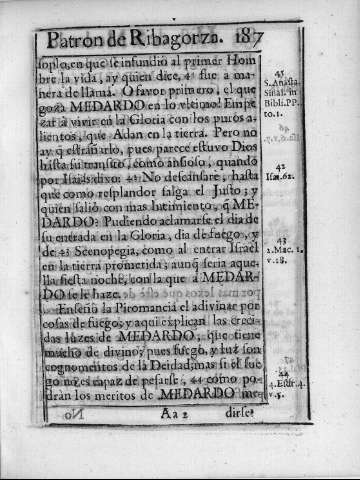 Patron de Ribagorza. 187
soplo, en que se infundió al primer Hom
bre la vida, ay quien dice, 41 fue a ma-
nera de llama. O favor primero, el que
goza MEDARDO en lo vltimo! Empe
zar á vivir en la Gloria con los puros a-
lientos, que Adan en la tierra. Pero no
ay q estrañarlo, pues parece estuvo Dios
hasta su transito, como ansioso, quando
por Isaias dixo: 42 No descansare, hasta
que como resplandor salga el Justo; y
quien salió con mas lucimiento, q ME-
DARDO? Pudiendo aclamarse el dia de
su entrada en la Gloria, dia de fuego, y
de 43 Scenopegia, como al entrar Israel
en la tierra prometida; aunq seria aque-
lla fiesta noche, con la que a MEDAR-
DO se le haze.
Enseñò la Piromancia el adivinar por
cosas de fuego; y aqui explican las creci-
das luzes de MEDARDO, que tiene
mucho de divino; pues fuego, y luz son
cognomentos de la Deidad; mas si el fue
go no es capaz de pesarse, 44 como po-
dràn los meritos de MEDARDO me-
Aa 2 dirse?
S. Anasta.
Sinai. in
Bibli. PP.
to. 1.
42
Isæ. 62.
43
2. Mac. 1.
v. 18.
44
4. Esdr. 4.
v. 5.